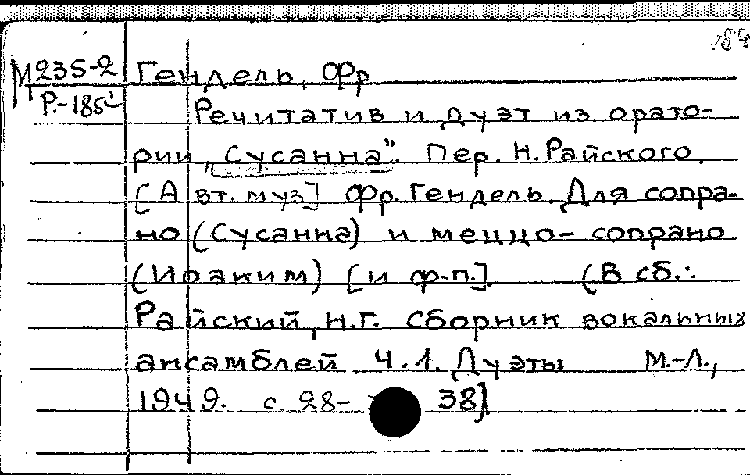 М235-2 Гендель, Фр
Р-185 Речитатив и дуэт из орато-
рии „Сусанна“. Пер. Н. Райского.
[Авт. муз] Фр. Гендель. Для сопра-
но (Сусанна) и меццо-сопрано
(Иоаким) [и ф-п.]. (В сб.:
Райский, Н.Г. Сборник вокальных
ансамблей Ч.1. Дуэты М.-Л.,
1949. с 28- 38)